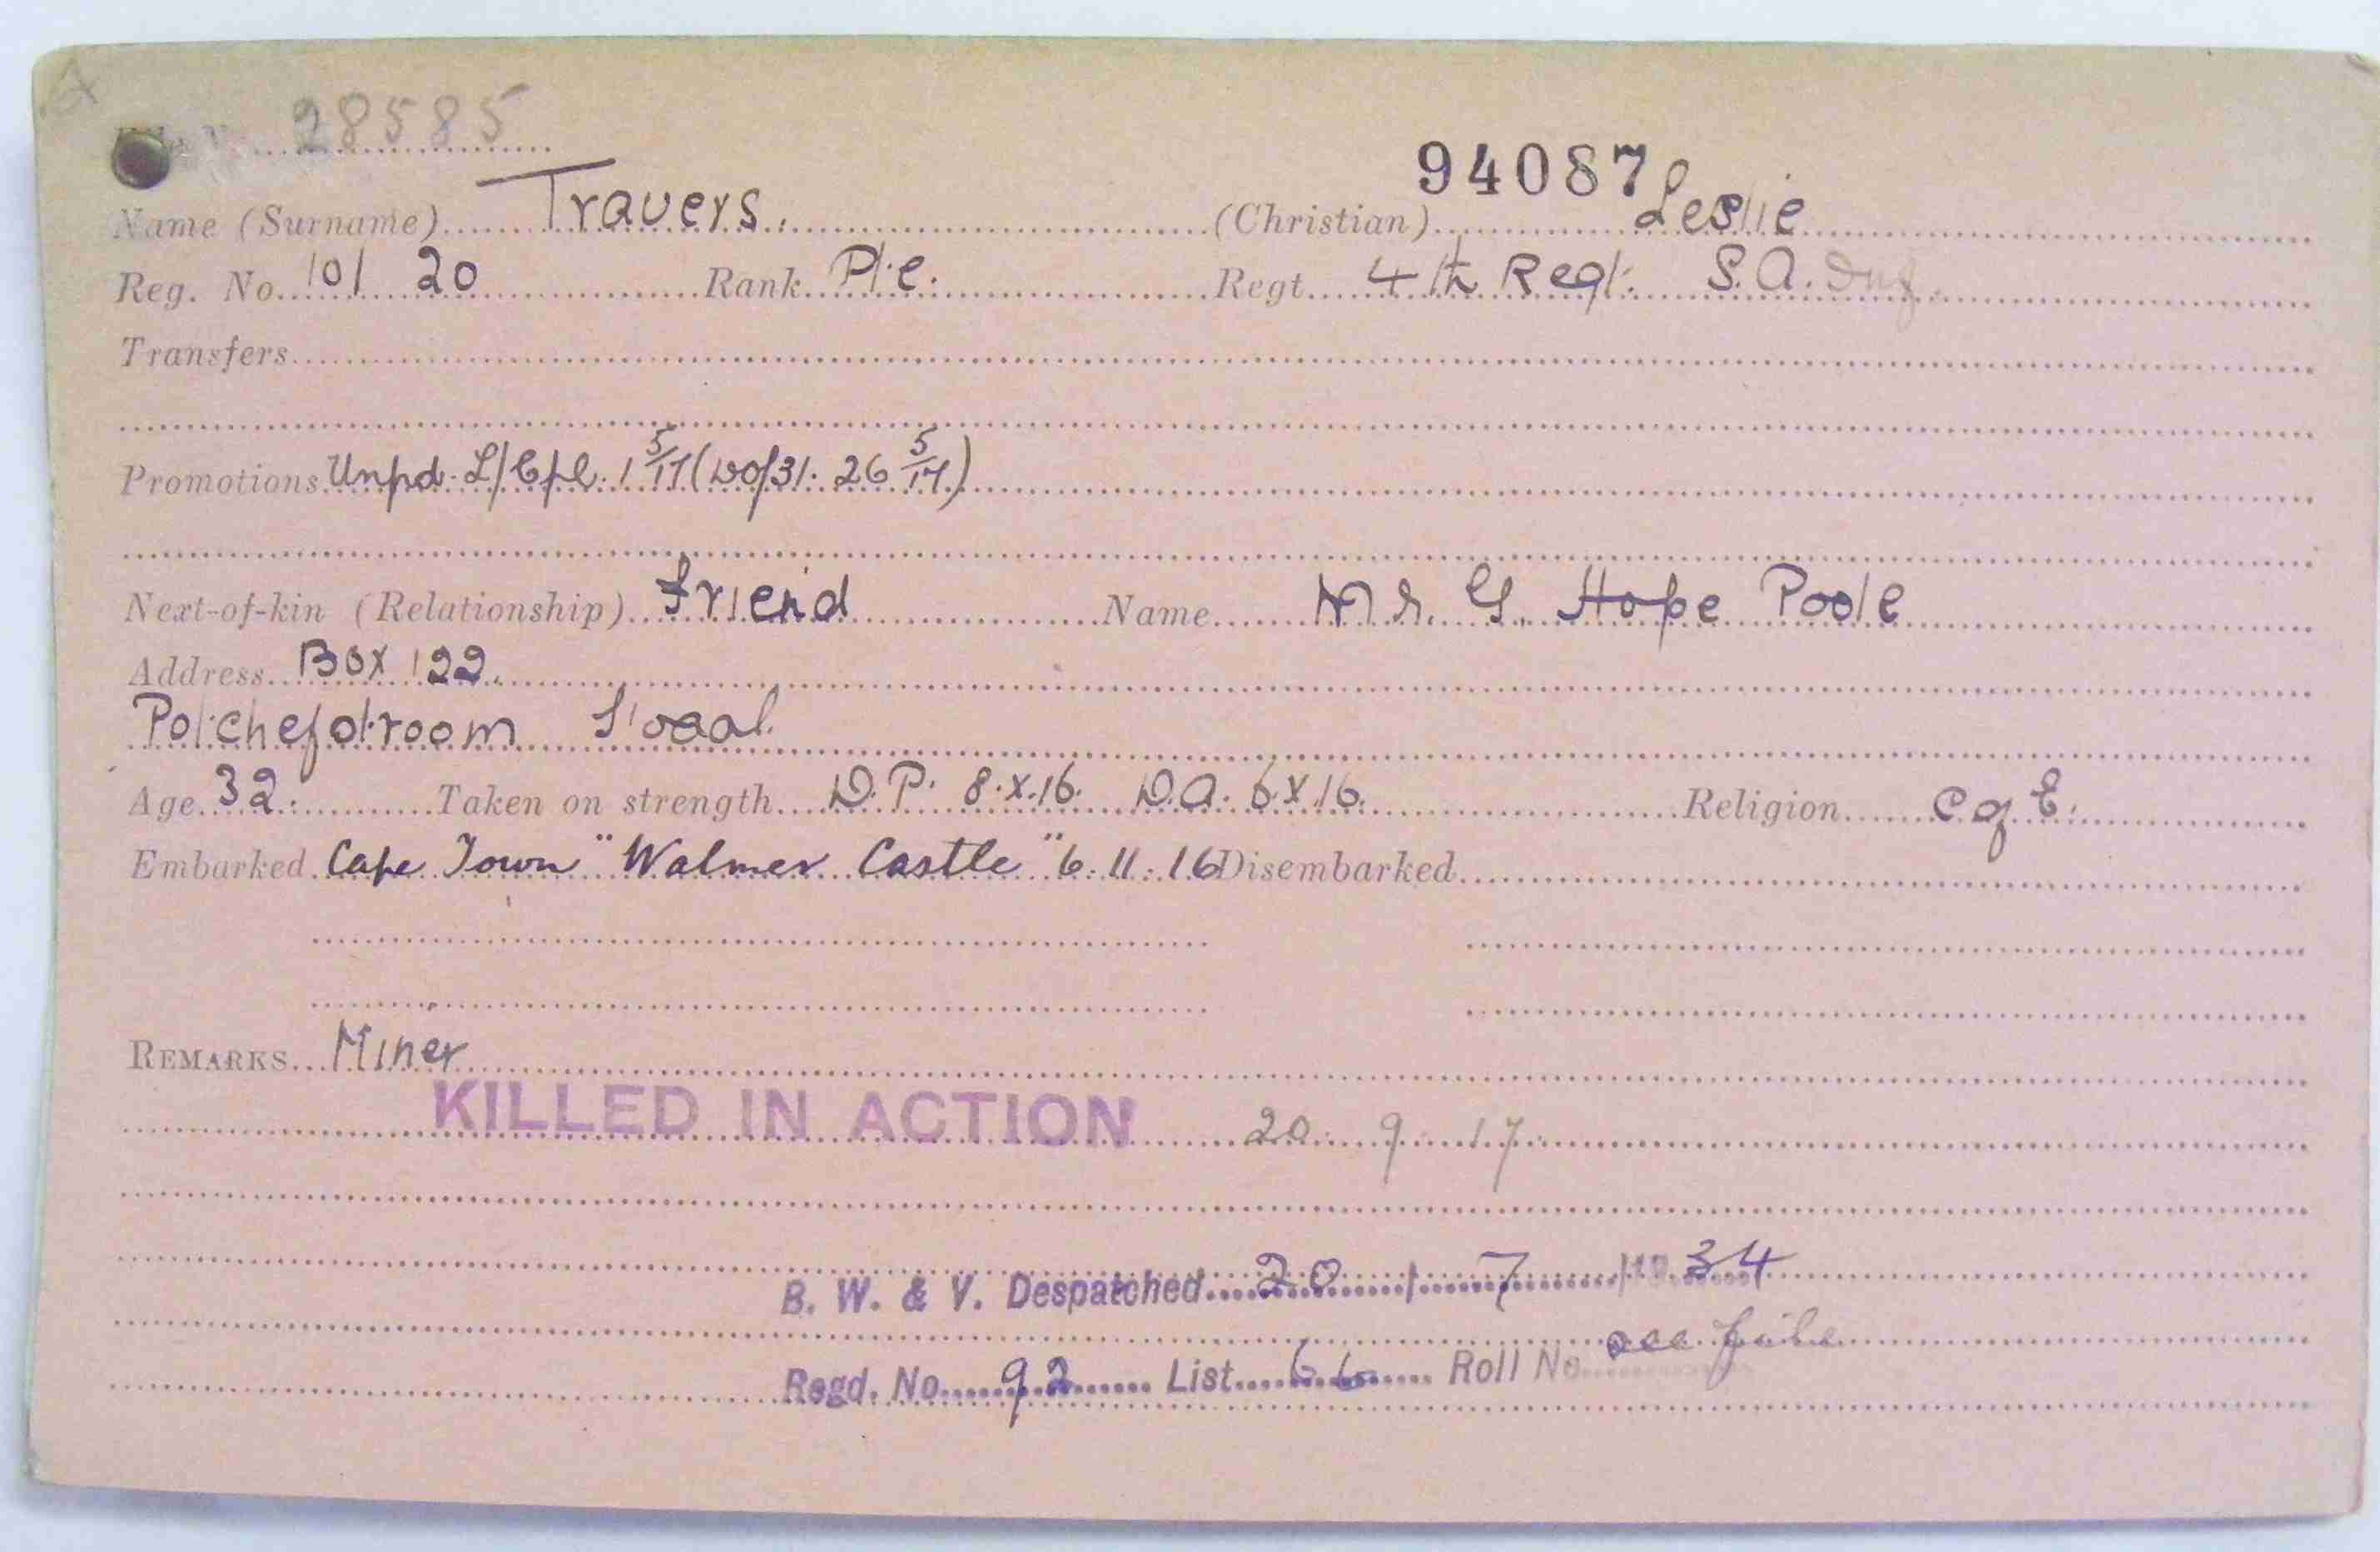 28585
94087
Name (Surname) Travers. (Christian) Leslie
Reg. No. 10120 Rank Pte. Regt. 4th Regt. S.A. Inf.
Transfers
Promotions Unpd. L/Cpl. 1 5/17 (DO/31. 26 5/17)
Next-of-kin (Relationship) friend Name Mr. G. Hope Poole
Address Box 122.
Potchefstroom T'vaal.
Age 32. Taken on strength D.P. 8.X.16. D.A. 6 X 16. Religion C of E.
Embarked Cape Town "Walmer Castle" 6.11.16 Disembarked
REMARKS Miner
KILLED IN ACTION 20. 9. 17.
B. W. & V. Despatched 20 / 7 /19 34
see file
Regd. No. 92 List 66 Roll No.